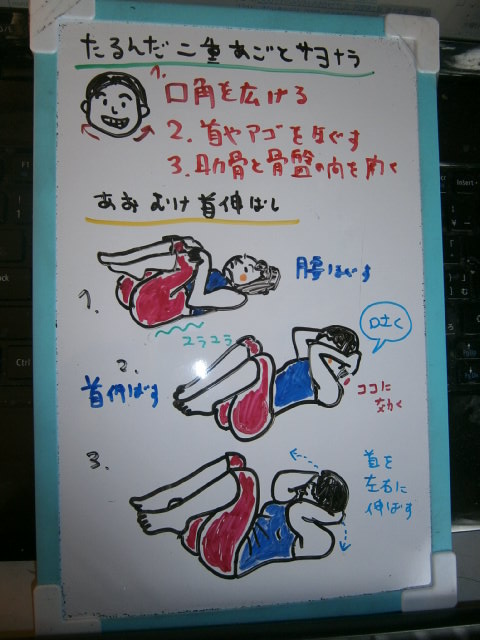 たるんだ二重あごとサヨナラ
1. 口角を広げる
2. 首やアゴをほぐす
3. 肋骨と骨盤の向を向く
あおむけ首伸ばし
1.
腰ほぐす
ユラユラ
2.
首伸ばす
口土く
ココに
効く
3.
首を
左右に
伸ばす